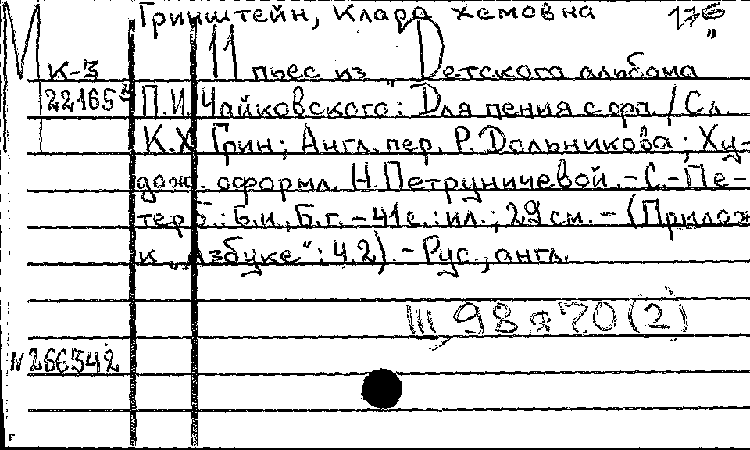 Гринштейн, Клара Хемовна 176
М
К-3 11 пьес из "Детского альбома
22165 П.И. Чайковского: Для пения с орг. / Сл.
К.Х. Грин; Англ. пер. Р. Дольникова; Ху-
дож. оформл. Н. Петруничевой. - С.-Пе-
терб.: Б.и., Б.г. - 41 с.: ил.; 29 см. - (Прилож
к „Азбуке": Ч.2). - Рус., англ.
Ш 98я70(2)
N 266342